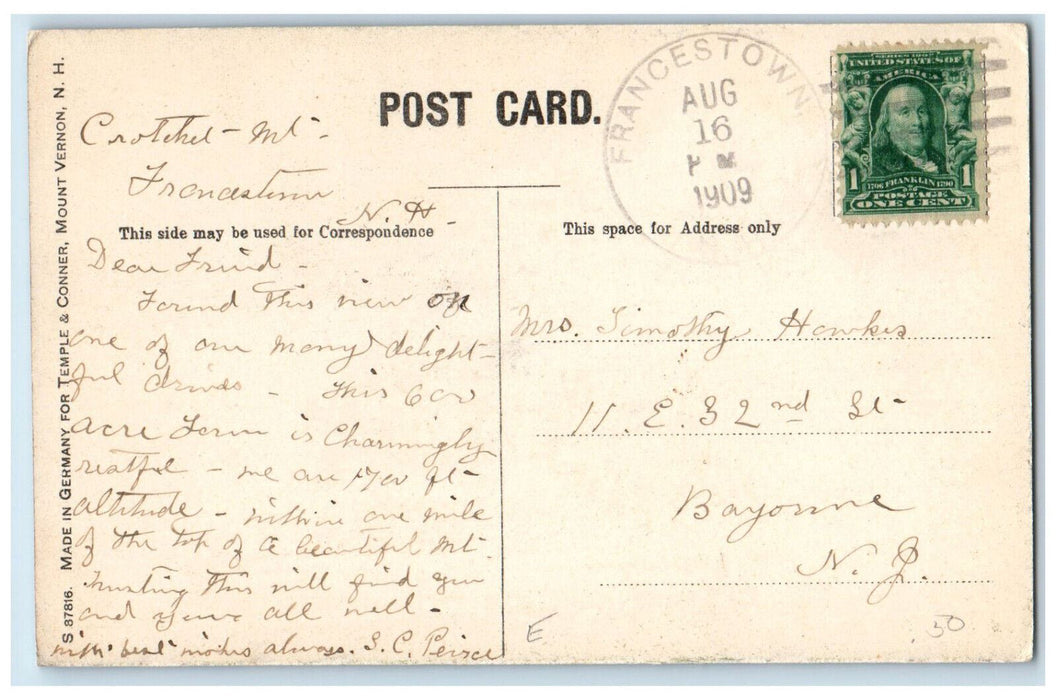 POST CARD.
FRANCESTOWN
AUG
16
P M
1909
SERIES 1902
UNITED STATES OF
AMERICA
1706 FRANKLIN 1790
1 POSTAGE 1
ONE CENT
S 87816. MADE IN GERMANY FOR TEMPLE & CONNER, MOUNT VERNON, N. H.
Crotchet - Mt -
Francestown
N. H -
This side may be used for Correspondence
Dear Friend -
Found this view on
one of our many delight-
ful drives - This 600
acre Farm is Charmingly
restful - we are 1700 ft -
altitude - within one mile
of the top of a beautiful Mt.
Trusting this will find you
and yours all well -
with best wishes always. S. C. Peirce
This space for Address only
Mrs. Timothy Hawkes
11. E. 32nd St -
Bayonne
N. J.
E
.50